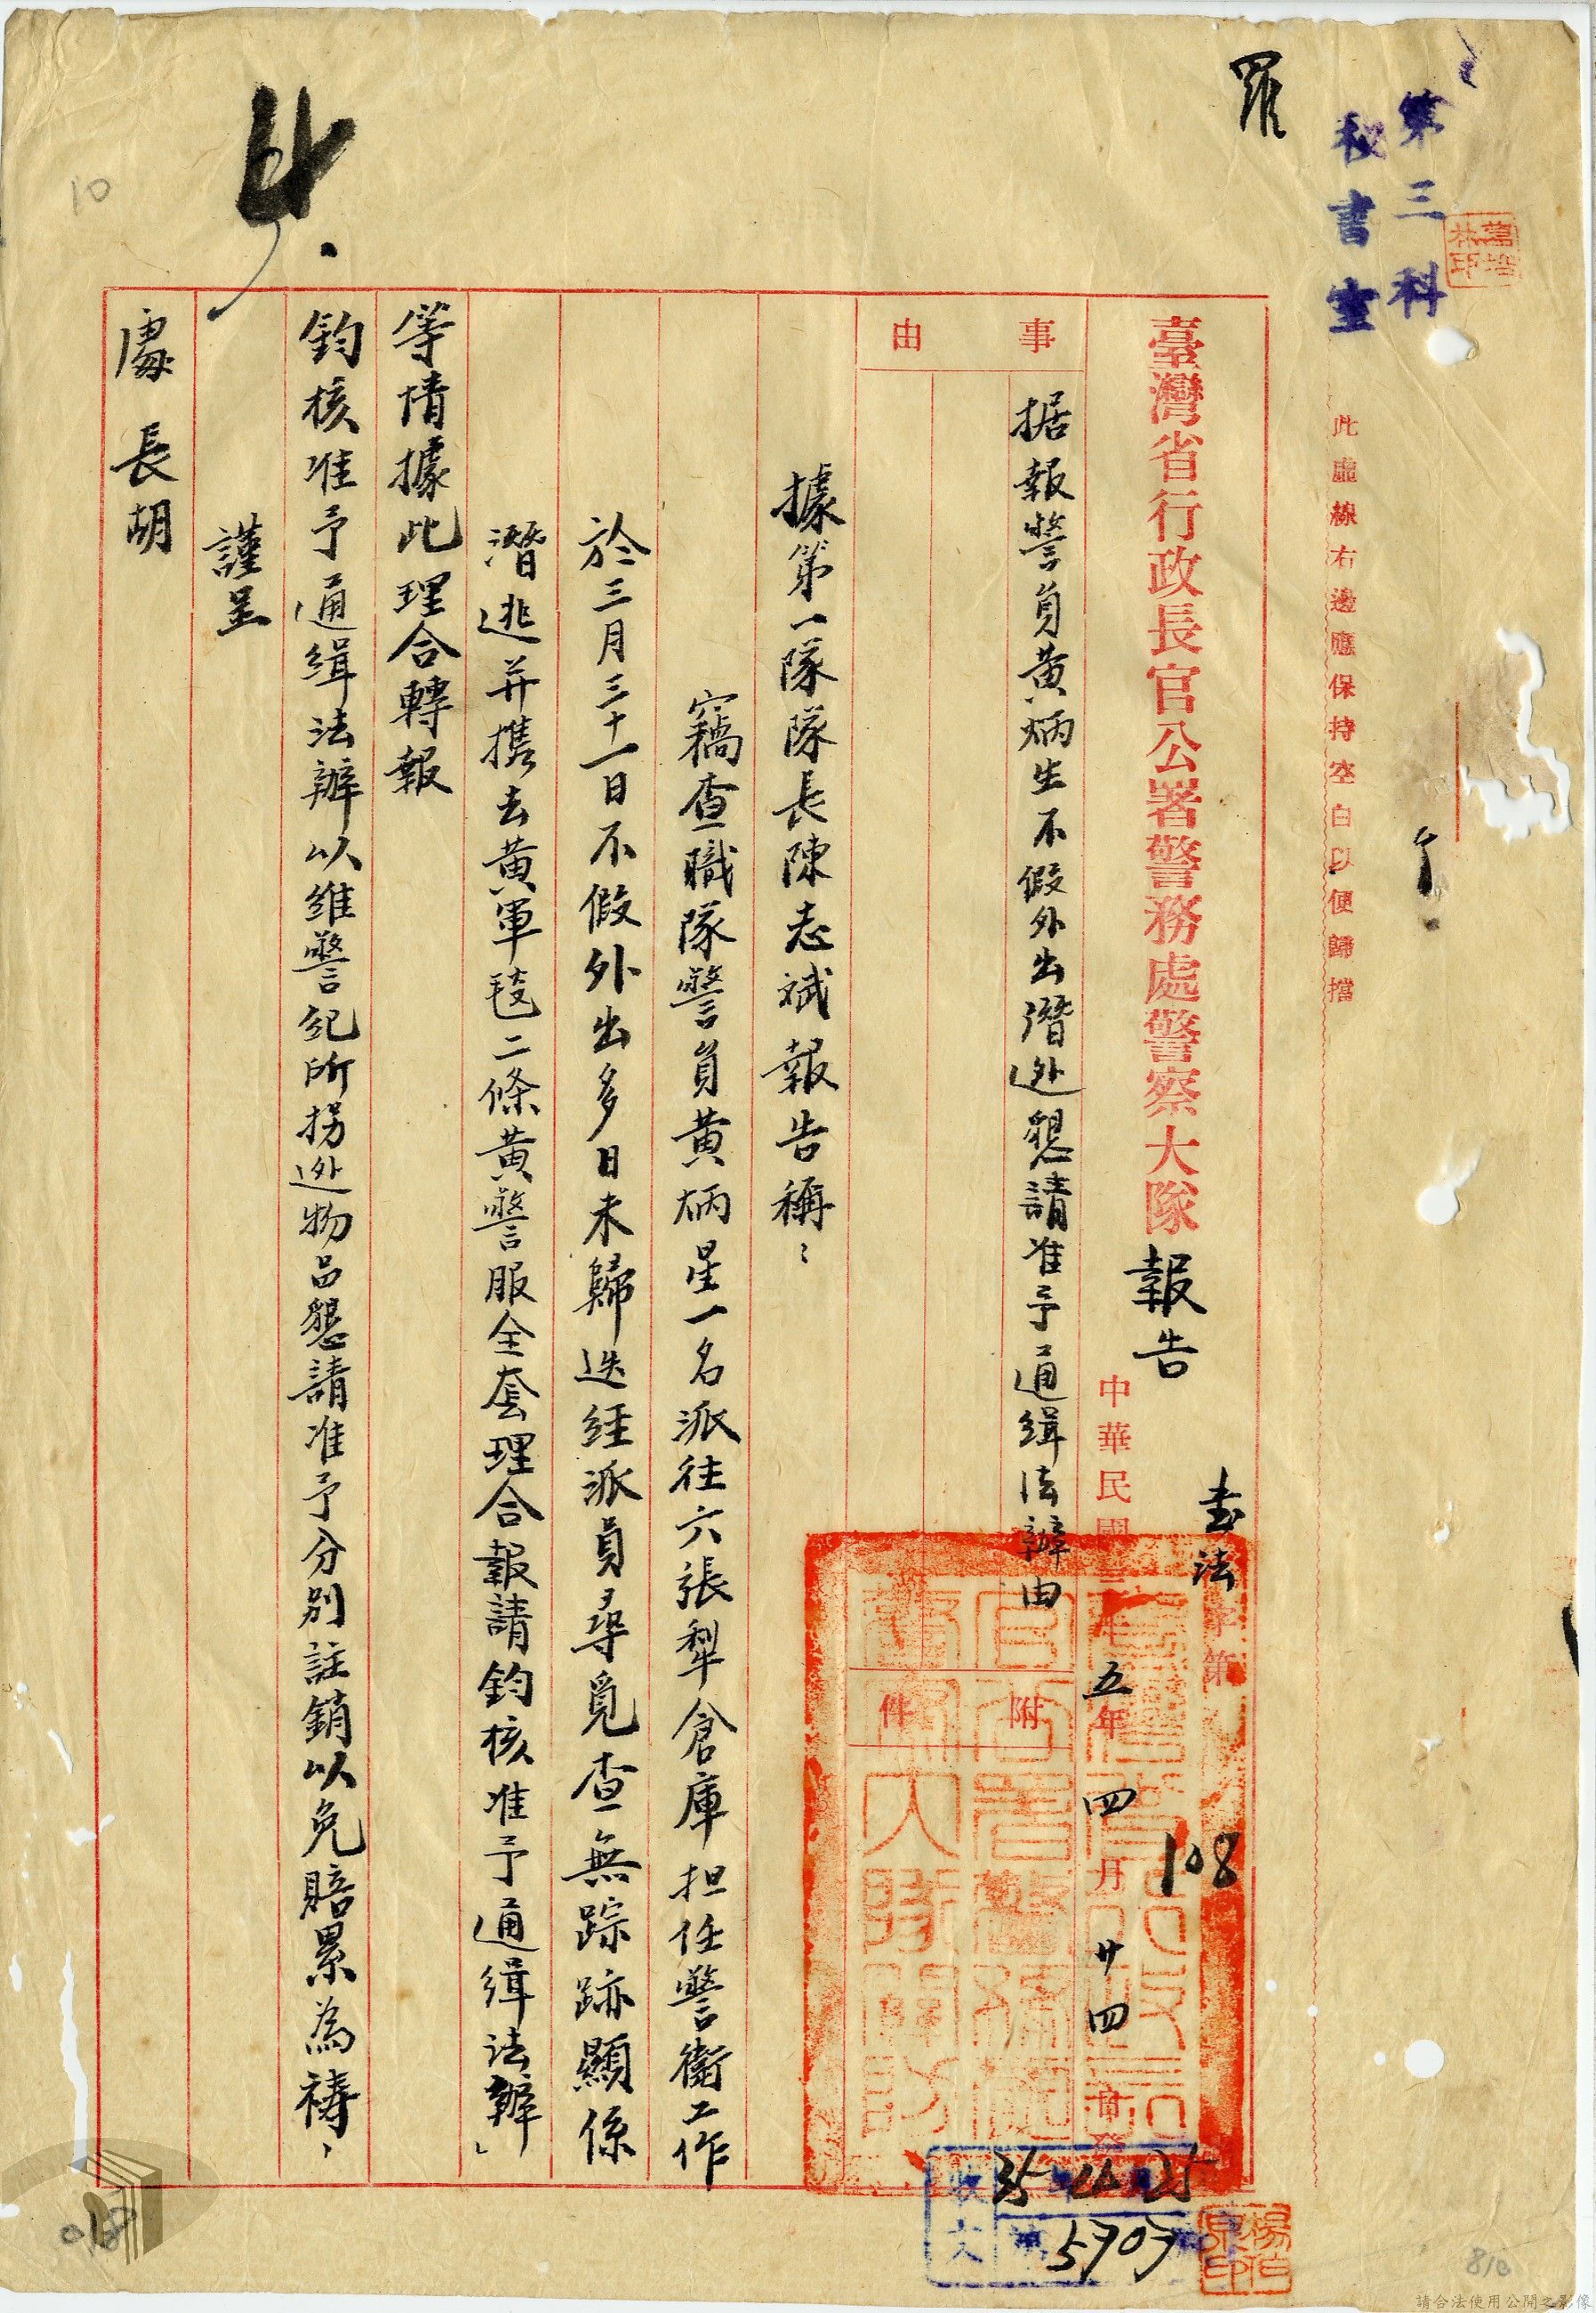 第三科
秘書室
羅
此虛線右邊應保持空白以便歸擋
臺灣省行政長官公署警務處警察大隊報告
法字第108
中華民國三十五年四月廿四日發
事由
据報警員黃炳生不假外出潛逃懇請准予通缉法辦由
附件
據第一隊隊長陳志斌報告稱:
竊查職隊警員黃炳星一名派往六張犁倉庫担任警衛工作
於三月三十一日不假外出多日未歸迭經派員尋覓查無踪跡顯係
潛逃并携去黃軍毯二條黃警服全套理合報請鈞核准予通缉法辦」
等情據此理合轉報
鈞核准予通缉法辦以維警紀所拐逃物品懇請准予分別註銷以免賠累為禱,
謹呈
處長胡
收文
35 4 25
5707
10
018
810
請合法使用公開之影像